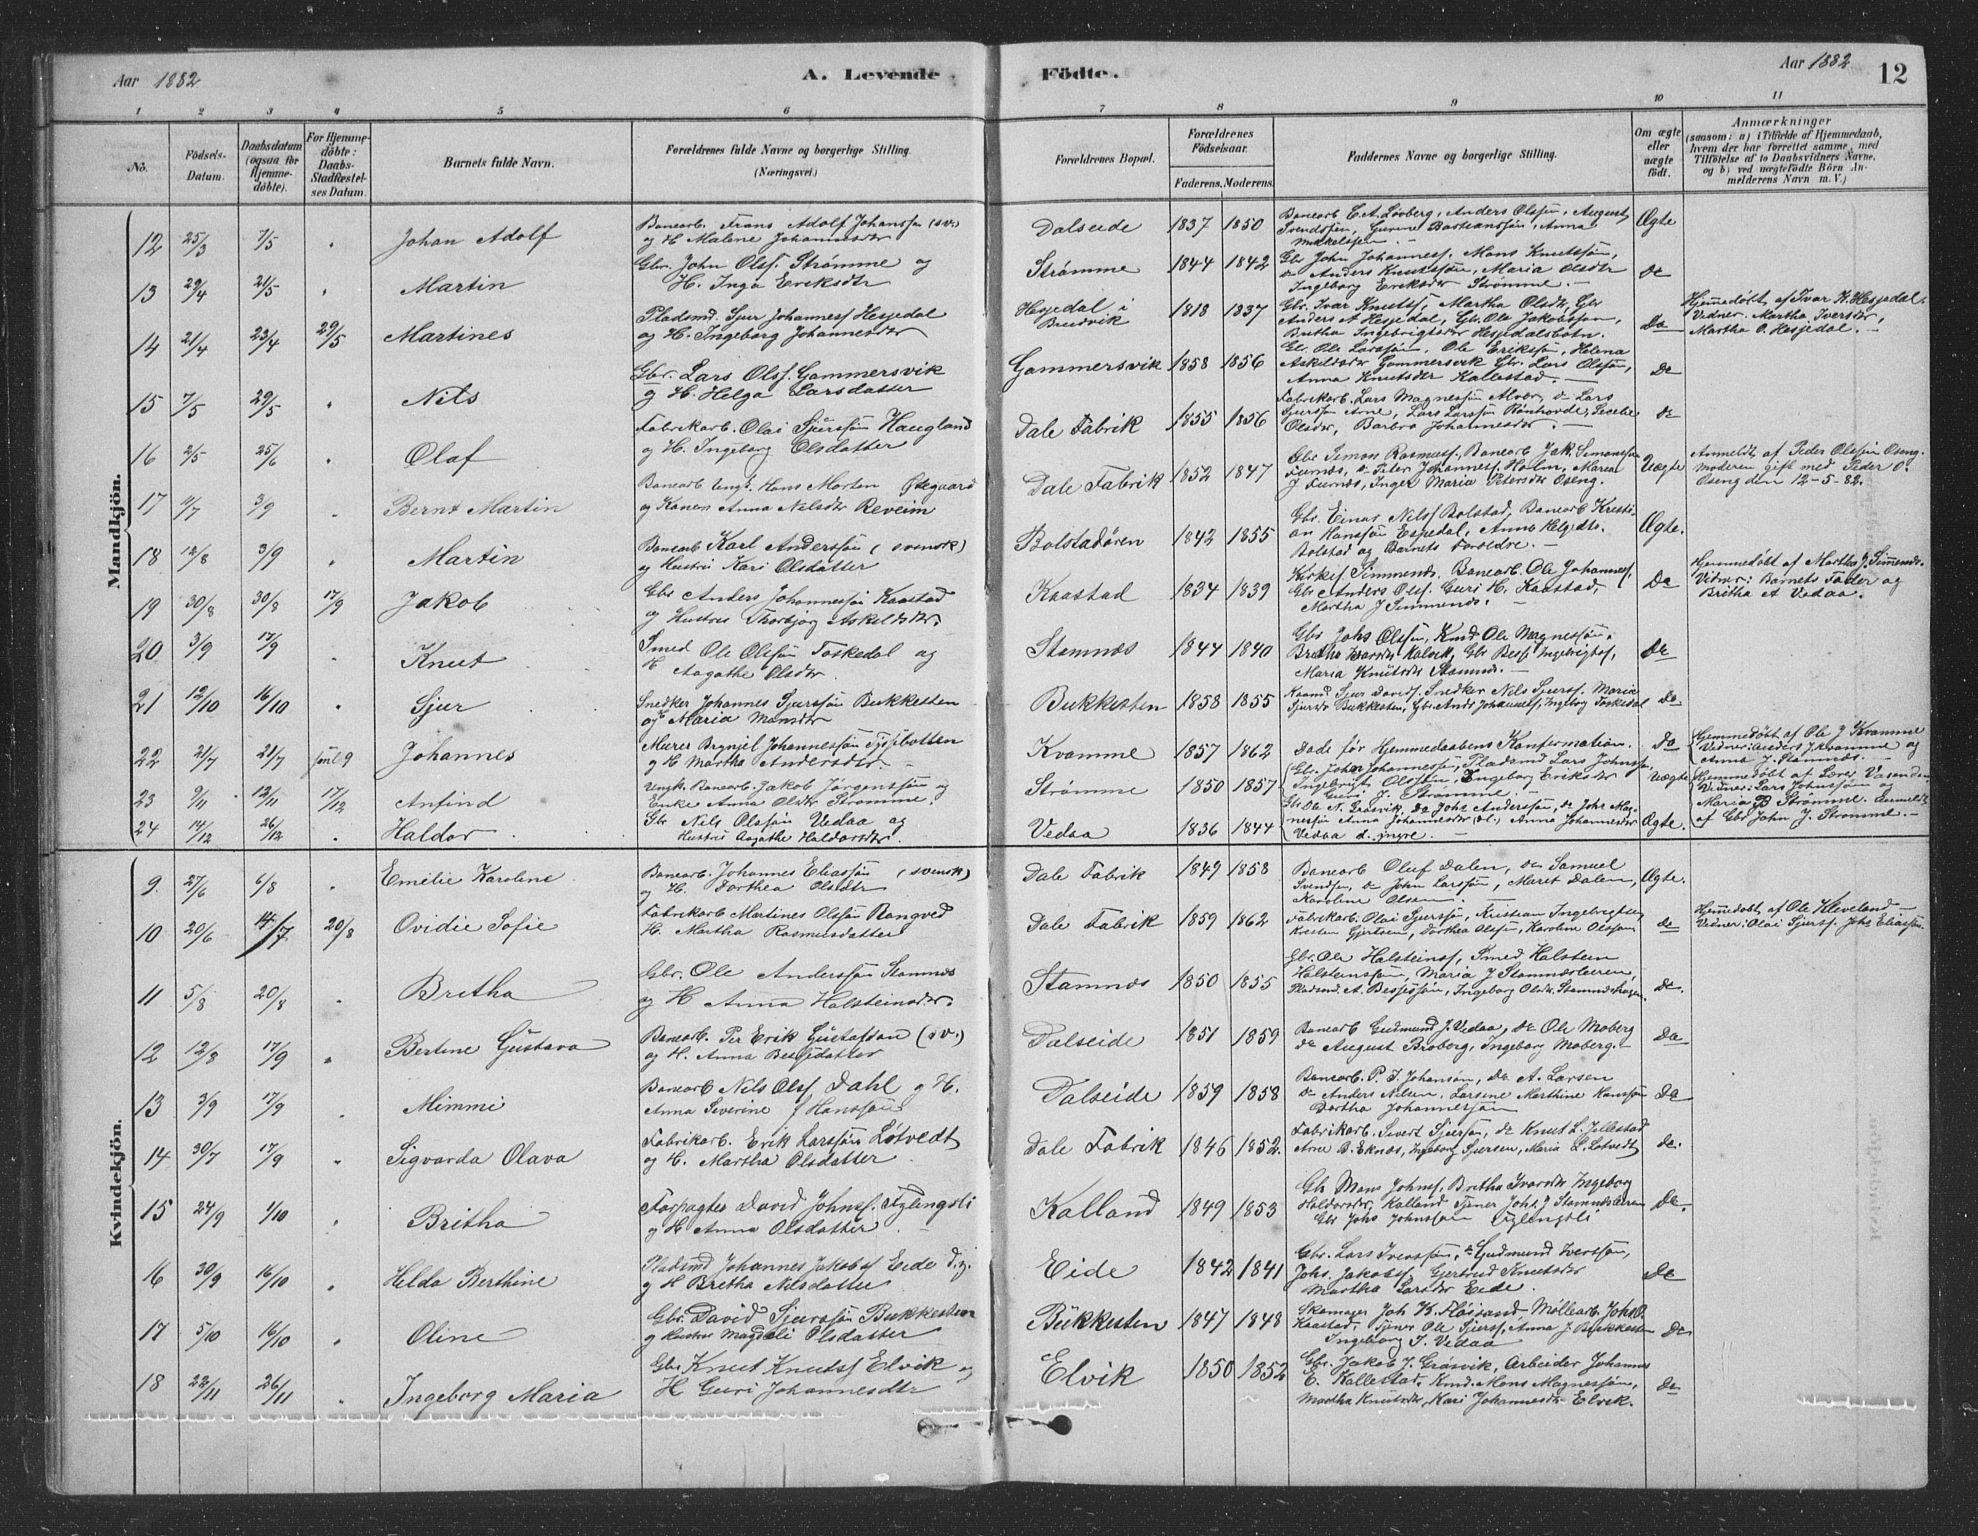 Aar 1882
A. Levende
Födte.
Aar 1882
12
1 2 3 4 5 6 7 8 9 10 11
No.
Födsels-Datum.
Daabsdatum (ogsaa for Hjemmedöbte).
For Hjemmedöbte: Daabs-Stadfæstelses Datum.
Barnets fulde Navn.
Forældrenes fulde Navne og borgerlige Stilling. (Næringsvei.)
Forældrenes Bopæl.
Forældrenes Födselsaar.
Faderens. Moderens.
Faddernes Navne og borgerlige Stilling.
Om ægte eller uægte födt.
Anmærkninger
(saasom: a) i Tilfælde af Hjemmedaab, hvem der har forrettet samme, med Tilföielse af to Daabsvidners Navne, og b) ved uægtefödte Börn Anmelderens Navn m. V.)
Mandkjön.
12 25/3 7/5 " Johan Adolf
Banearb. Frans Adolf Johansson (sv.)
og H. Malene Johannesdtr
Dalseide 1837 1850
Banearb C. A. Lövberg, Anders Olsen, August
Svendsen, Gunne Bastiansen, Anna
Mikkelsen. Ægte
13 29/4 21/5 " Martin
Gbr. John Olsf. Strømme og
H. Inga Eriksdtr
Strømme 1844 1842
Gbr John Johannesf. Mons Knutssøn,
do Anders Knutssøn, Maria Olsdtr
Ingeborg Eriksdtr Strømme. de
14 21/4 23/4 29/5 Martines
Pladsmd. Sjur Johannesf Hesjedal
og H. Ingeborg Johannesdtr
Hesjedal i
Bruvik 1818 1837
Gbr. Ivar Knutsf, Martha Olsdtr, Gbr
Anders A Hesjedal, Gbr. Ole Jakobsson,
Britha Ingebrigtsdtr Hesjedalsbotn. Do
Hjemmedøbt af Ivar K. Hesjedal.
Vidner: Martha Iversdtr,
Martha O. Hesjedal.
15 7/5 29/5 " Nils
Gbr. Lars Olsf. Gammersvik
og H. Helga Larsdatter
Gammersvik 1858 1856
Gbr. Ole Larssøn, Ole Erikssøn, Helena
Askildsdtr Gammersvik Gbr. Lars Olssøn,
Anna Knutsdtr Kallestad. De
16 2/5 25/6 " Olaf
Fabrikarb. Olai Sjurssøn Haugland
og H. Ingeborg Olsdatter
Dale Fabrik 1855 1856
Fabrikarb. Lars Magnessøn Alver, do Lars
Sjurssøn Arne, Lars Larssøn Rönhovde,
Olsdtr, Barbro Johannesdtr. de
17 4/7 3/9 " Bernt Martin
Banearb Ungk. Hans Morten Østegaard
og Konen Anna Nilsdtr Reveim
Dale Fabrik 1852 1847
Gbr Simon Rasmusf. Banearb Jak. Simonsen
Furnes, do Peter Johannesf. Holm, Maria
J Furnes, Inger Maria Petersdtr Oseng. Uægte
Anmeldt af Peder Olssøn Oseng.
Moderen gift med Peder O.
Oseng den 12-5-82.
18 12/8 3/9 " Martin
Banearb. Karl Anderssøn (svensk)
og Hustru Kari Olsdatter
Bolstadøren 1842 1855
Gbr. Einar Nilsf Bolstad, Banearb Kresti-
an Hanssøn Espedal, Anna Helgesdtr
Bolstad og Barnets Foreldre. Ægte.
19 30/8 30/8 17/9 Jakob
Gbr Anders Johannessøn Kaastad
og Hustru Thorbjør Askeldsdtr.
Kaastad 1834 1839
Kirkes. Simmenes. Banearb. Ole Johannesf,
Gbr Anders Olsf. Guri H. Kaastad,
Martha J Simmenes. De
Hjemmedøbt af Martha J. Simenes.
Vidner: Barnets Fader og
Britha A Vedaa.
20 3/9 17/9 " Knut
Smed Ole Olssøn Foskedal og
H. Aagathe Olsdtr.
Stamnæs 1844 1840
Gbr Johs Olssøn, Kmd Ole Magnessøn,
Britha Kalvik, Gbr Besf. Ingebrigtsf,
Maria Knutsdtr Stamnes. De
21 12/10 16/10 " Sjur
Snedker Johannes Sjurssøn Bukkesten
og H Maria Monsdtr
Bukkesten 1858 1855
Kaarmd Sjur Davidsf. Snedker Nils Sjursf. Maria
Sjursdtr Bukkesten, Gbr. Ands Johannesf, Ingeborg Foskedal do
22 21/7 21/7 Juli 9 Johannes
Murer Brynjel Johannessøn
og H Martha Andersdtr.
Kvamme 1857 1862
Døde før Hjemmedaabens Konfirmation. Do
Hjemmedøbt af Ole J Kvamme
Vidner: Anders J Kvamme og
Anna J. Stamnes.
23 9/11 12/11 17/12 Anfind
Ungk. Banearb. Jakob Jørgenssøn og
Enke Anna Olsdtr Strømme.
Strømme 1850 1857
Gbr. John Johannessøn, Pladsmd Lars Johnssøn,
Ingebrigt Olssøn, Ingeborg Eriksdtr
Guri J. Strømme. Uægte
Hjemmedøbt af
Vidner: Lars Johnssøn og
Maria B Strømme. Anmeldt
af Gbr John J. Strømme.
24 14/12 26/12 " Haldor
Gbr Nils Olssøn Vedaa og
Hustru Aagathe Haldorsdtr.
Vedaa 1836 1844
Gbr Ole N. Gråsvik, do Johs Anderssøn, do Johs Mag-
nessøn Anna Johannesdtr (d.) Anna Johannesdtr
Vedaa d. yngre. Ægte.
Kvindekjön.
9. 27/6 6/8 " Emelie Karoline
Banearb. Johannes Eliassøn (svensk)
og H. Dorthea Olsdtr
Dale Fabrik 1849 1858
Banearb Oluf Dalen, do Samuel
Svendsen, do John Larssøn, Maret Dalen,
Karoline Olsen. Ægte.
10 20/6 14/7 20/8 Ovidie Sofie
Fabrikarb Martines Olssøn Rongved
H. Martha Rasmusdatter
Dale Fabrik 1859 1862
Fabrikarb. Olai Sjurssøn, Kristian Ingebrigtsen
Kirsten Gjertsen, Dorthea Olsen, Karoline Olsson de
Hjemmedøbt af Ole Kleveland.
Vidner: Olai Sjursf. Johs Eliassøn.
11 5/8 20/8 " Britha
Gbr. Ole Anderssøn Stamnes
og H Anna Halsteinsdtr.
Stamnes 1850 1855
Gbr. Ole Halsteinsf, Smed Halstein
Halsteinssøn, Maria J Stamnesleeren,
Pladsmd. A. Bessessøn, Ingeborg Olsdtr Stamneshagen. de.
12 12/8 17/9 " Bertine Gustava
Banearb. Per Erik Gustafsson (sv.)
og H. Anna Bessedatter
Dalseide 1851 1859
Banearb Gudmund J. Vedaa, do Ole Moberg
do August Broberg, Ingeborg Moberg. Do
13 3/9 17/9 " Mimmi
Banearb Nils Olsf Dahl og H.
Anna Severine f Hanssøn
Dalseide 1859 1858
Banearb. P. J. Johanson, do A. Larsen
do Anders Nilsen, Larsine Marthine Hanssøn
Dorthea Johannessøn Do
14 30/7 17/9 " Sigvarda Olava
Fabrikarb. Erik Larssøn Løtvedt
og H. Martha Olsdatter
Dale Fabrik 1846 1852.
Fabrikarb. Sivert Sjurssøn, do Knut L. Jellestad
Arne B. Eknes, Ingeborg Sjursen, Maria L. Løtvedt de.
15 24/9 1/10 " Britha
Forpagter David Johnsf. Fylingsli
og H Anna Olsdatter
Kalland 1849 1853
Gbr Mons Johnsf, Britha Ivarsdtr Ingeborg
Haldorsdtr, Kalland Tjener Johs J Stamnesleeren
Gbr Johs Johnssøn Fylingsli De.
16 30/9 16/10 " Helda Berthine
Pladsmd Johannes Jakobsf Eide d.y.
og H Britha Nilsdatter
Eide 1842 1841
Gbr. Lars Iverssøn, do Gudmund Iverssøn,
Johs. Jakobsf, Gjertrud Knutsdtr
Martha Larsdtr Eide. De
17 5/10 16/10 " Oline
Gbr. David Sjurssøn Bukkesten
og Hustru Magdeli Olsdatter
Bukkesten 1847 1848
Skomager Joh K. Fløsand, Møllearb. Johs O.
Kaastad, Tjener Ole Sjursf, Anna J. Bukkesten
Ingeborg J. Vedaa De
18 22/11 26/11 " Ingeborg Maria
Gbr Knut Knutsf Elvik og
H Guri Johannesdtr
Elvik 1850 1852
Gbr. Jakob J. Gråsvik, Arbeider Johannes
E. Kallestad, Kmd. Mons Magnessøn,
Martha Knutsdtr, Kari Johannesdtr Elvik. de